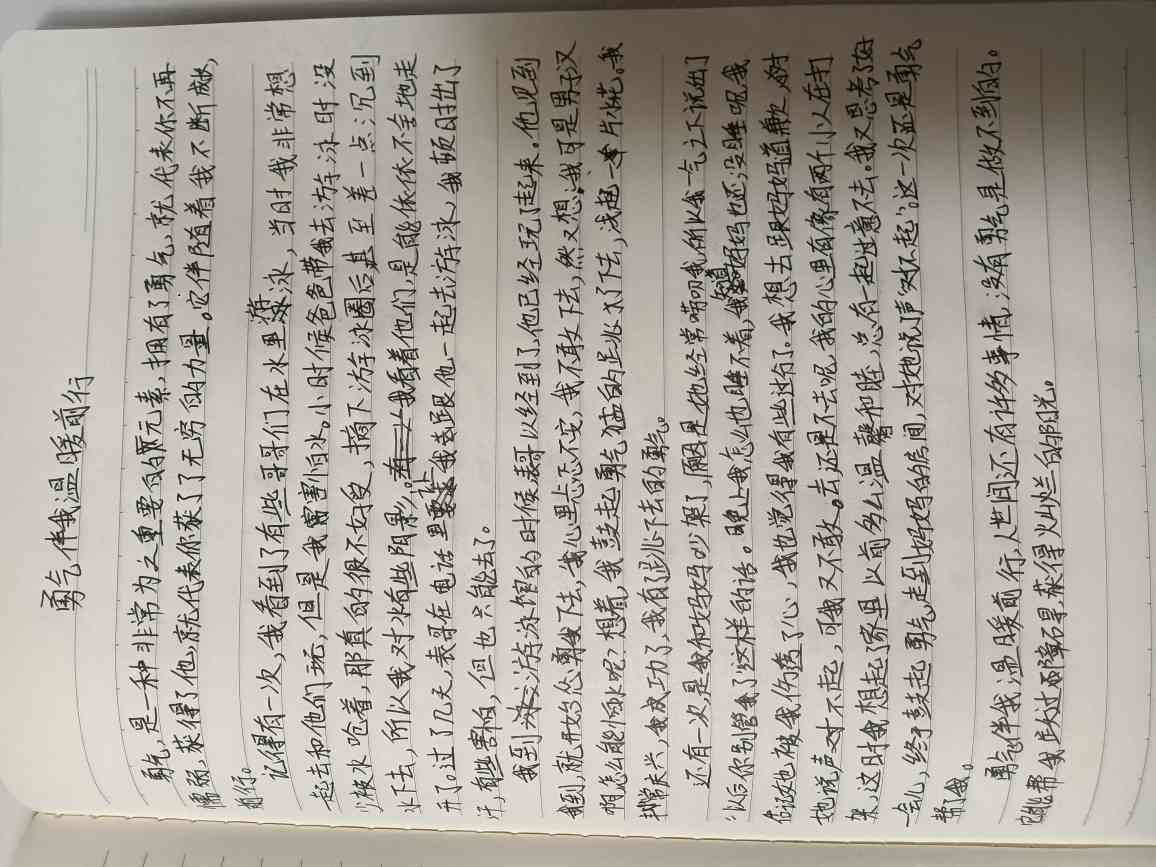 勇气伴我温暖前行
勇气,是一种非常为之重要的元素,拥有了勇气,就代表你不再
懦弱,获得了他,就代表你获了了无穷的力量。它伴随着我不断
前行。
记得有一次,我看到了有些哥哥们在水里游泳,当时我非常想
起去和他们玩,但是我害割怕水。小时候爸爸带我去游泳时没
水呛着,那真的很不好受,摘下游泳圈后甚至差一点沉到
水下去,所以我对水有些阴影。我看着他们,是能依依不舍地走
开了。过了几天,表哥在电话里让我去跟他一起去游泳,我顿时出了
汗,有些害怕,但也只能去了。
我到游泳馆的时候表哥以经到了他已经玩了起来。他见到
我到,就开始怂勇我下去,我心里忐忑不安,我不敢下去,然又想:我可是男子汉
啊怎么能怕水呢?想着,我鼓起勇气猛的跳水了下去,浅起一片水花。我
非常失兴,我成功了,我有了跳下去的勇气。
还有一次是我和妈妈吵架了,因是她经常唠叨我所以我一气之下说出了
"以后你别管我了"这样的话。晚上我怎么也睡不着,我妈妈也还没睡呢,我
她也被我伤透了心,我也觉得我有些过份了。我想去跟妈妈道歉,对
她说声对不起,可我又不敢。去还是不去呢,我的心里有像有两个小人在打
架,这时我想起了第且以前多么温馨和睦,总有一起过意不去。我又思考
一会儿,终于鼓起勇气走到妈妈的房间,对她说了声"对不起"。这一次还是勇气
帮了我。
勇气伴我温暖前行,人世间还有许多事情,没有勇气是做不到的。
它能帮我跃过障碍获得火灿烂的阳光。